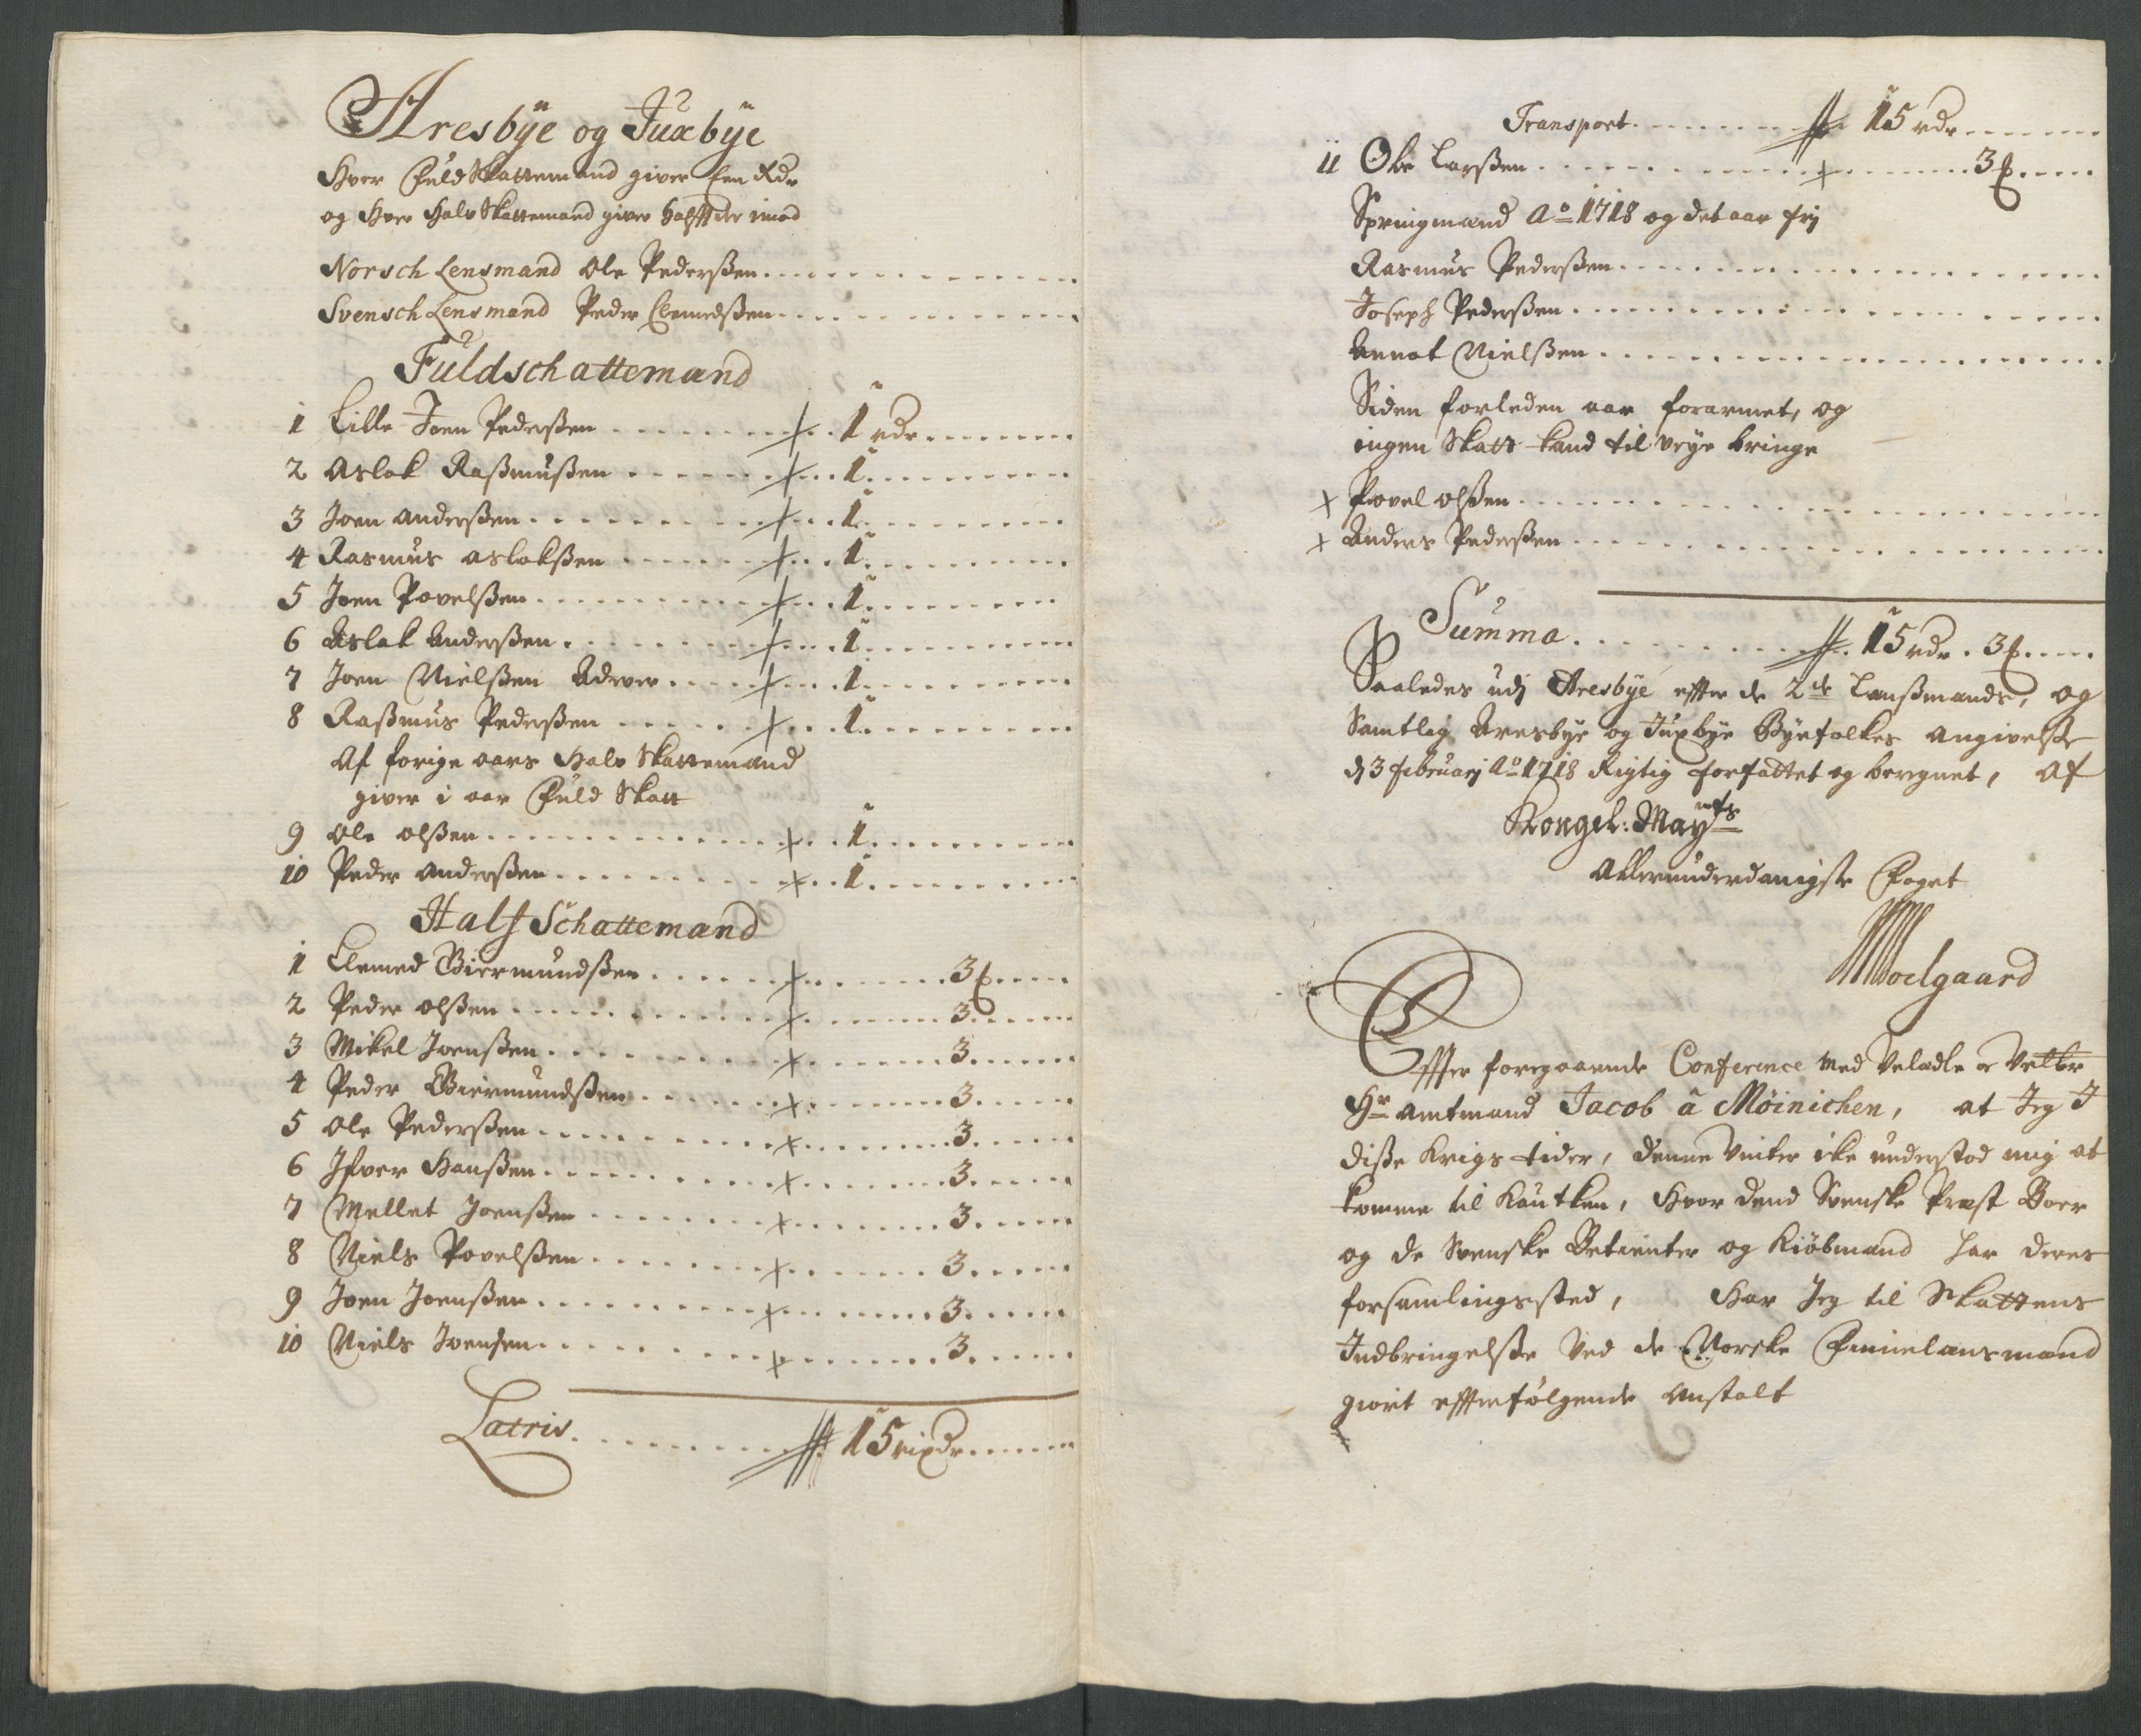 Aresbÿe og Juxbÿe
Hver Fuld Skattemand giver Een Rdr
og Hver Halv Skattemand giver halfft der imod
Norsch Lensmand Ole Pederßen
Svensch Lensmand Peder Clemedßen
Fuldschattemænd
1 Lille Joen Pederßen 1 rdr
2 Aslak Raßmußen 1
3 Joen Anderßen 1
4 Rasmus Aslakßen 1
5 Joen Povelßen 1
6 Aslak Anderßen 1
7 Joen Nielßen 1
8 Raßmus Pederßen 1
Af forige aars Halv Skattemænd
giver i aar Fuld Skatt
9 Ole Olßen 1
10 Peder Anderßen 1
Half Schattemænd
1 Clemed Biermundßen 3 ß
2 Peder Olßen 3
3 Mikel Joenßen 3
4 Peder Biermundßen 3
5 Ole Pederßen 3
6 Ifver Hanßen 3
7 Mellet Joenßen 3
8 Niels Povelßen 3
9 Joen Joenßen 3
10 Niels Joensen 3
Latris 15 rixdr
Transport 15 rdr
11 Ole Larßen 3
Springmænd Ao 1718 og det aar frj
Rasmus Pederßen
Joseph Pederßen
Nielßen
Siden forleden aar forarmet, og
ingen Skatt kand til veye bringe
x Povel Olßen
x Anders Pederßen
Summa 15 rdr. 3
Saaledes udj Aresbÿe effter de 2de Lenßmænds, og
Samtlig Aresbÿe og Juxbÿe Byefolkes Angivelße
dj 3 februarj Ao 1718 Rigtig forfattet og beregnet, Af
Kongel: Mayts
Allerunderdanigste Foget
Wedgaard
Effter foregaaende Conference med Velædle
Hr Amtmand Jacob â Møinichen, at Jeg J
diße Krigs tider, denne Vinter icke understod mig at
komme til Kautken, Hvor dend Svenske Præst Boer
og de Svenske Betienter og Kiøbmænd har deres
forsamlingssted, Har Jeg til Skattens
Indbringelße ved de Norske Finnelansmænd
giort effterfølgende Anstalt